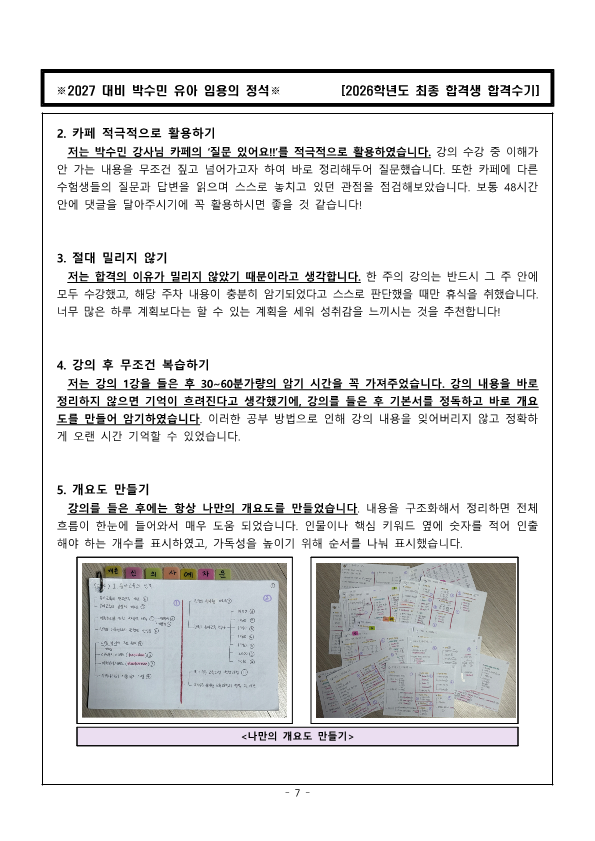 ※2027 대비 박수민 유아 임용의 정석※ [2026학년도 최종 합격생 합격수기]
2. 카페 적극적으로 활용하기
저는 박수민 강사님 카페의 '질문 있어요!!'를 적극적으로 활용하였습니다. 강의 수강 중 이해가
안 가는 내용을 무조건 짚고 넘어가고자 하여 바로 정리해두어 질문했습니다. 또한 카페에 다른
수험생들의 질문과 답변을 읽으며 스스로 놓치고 있던 관점을 점검해보았습니다. 보통 48시간
안에 댓글을 달아주시기에 꼭 활용하시면 좋을 것 같습니다!
3. 절대 밀리지 않기
저는 합격의 이유가 밀리지 않았기 때문이라고 생각합니다. 한 주의 강의는 반드시 그 주 안에
모두 수강했고, 해당 주차 내용이 충분히 암기되었다고 스스로 판단했을 때만 휴식을 취했습니다.
너무 많은 하루 계획보다는 할 수 있는 계획을 세워 성취감을 느끼시는 것을 추천합니다!
4. 강의 후 무조건 복습하기
저는 강의 1강을 들은 후 30~60분가량의 암기 시간을 꼭 가져주었습니다. 강의 내용을 바로
정리하지 않으면 기억이 흐려진다고 생각했기에, 강의를 들은 후 기본서를 정독하고 바로 개요
도를 만들어 암기하였습니다. 이러한 공부 방법으로 인해 강의 내용을 잊어버리지 않고 정확하
게 오랜 시간 기억할 수 있었습니다.
5. 개요도 만들기
강의를 들은 후에는 항상 나만의 개요도를 만들었습니다. 내용을 구조화해서 정리하면 전체
흐름이 한눈에 들어와서 매우 도움 되었습니다. 인물이나 핵심 키워드 옆에 숫자를 적어 인출
해야 하는 개수를 표시하였고, 가독성을 높이기 위해 순서를 나눠 표시했습니다.
<나만의 개요도 만들기>
- 7 -